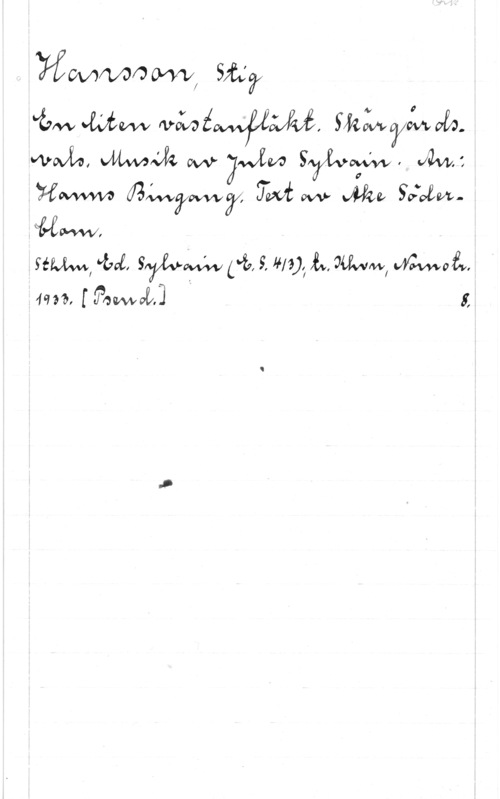 Hansson, Stig
En liten västanfläkt. Skärgårds-
vals. Musik av Jules Sylvain. Arr.:
Hanns Bingang. Text av Åke Söder-
blom.
Sthlm, Ed. Sylvain (E. S. 413); tr. Khvn, Nornotr.
1933. [Pseud.] 8.